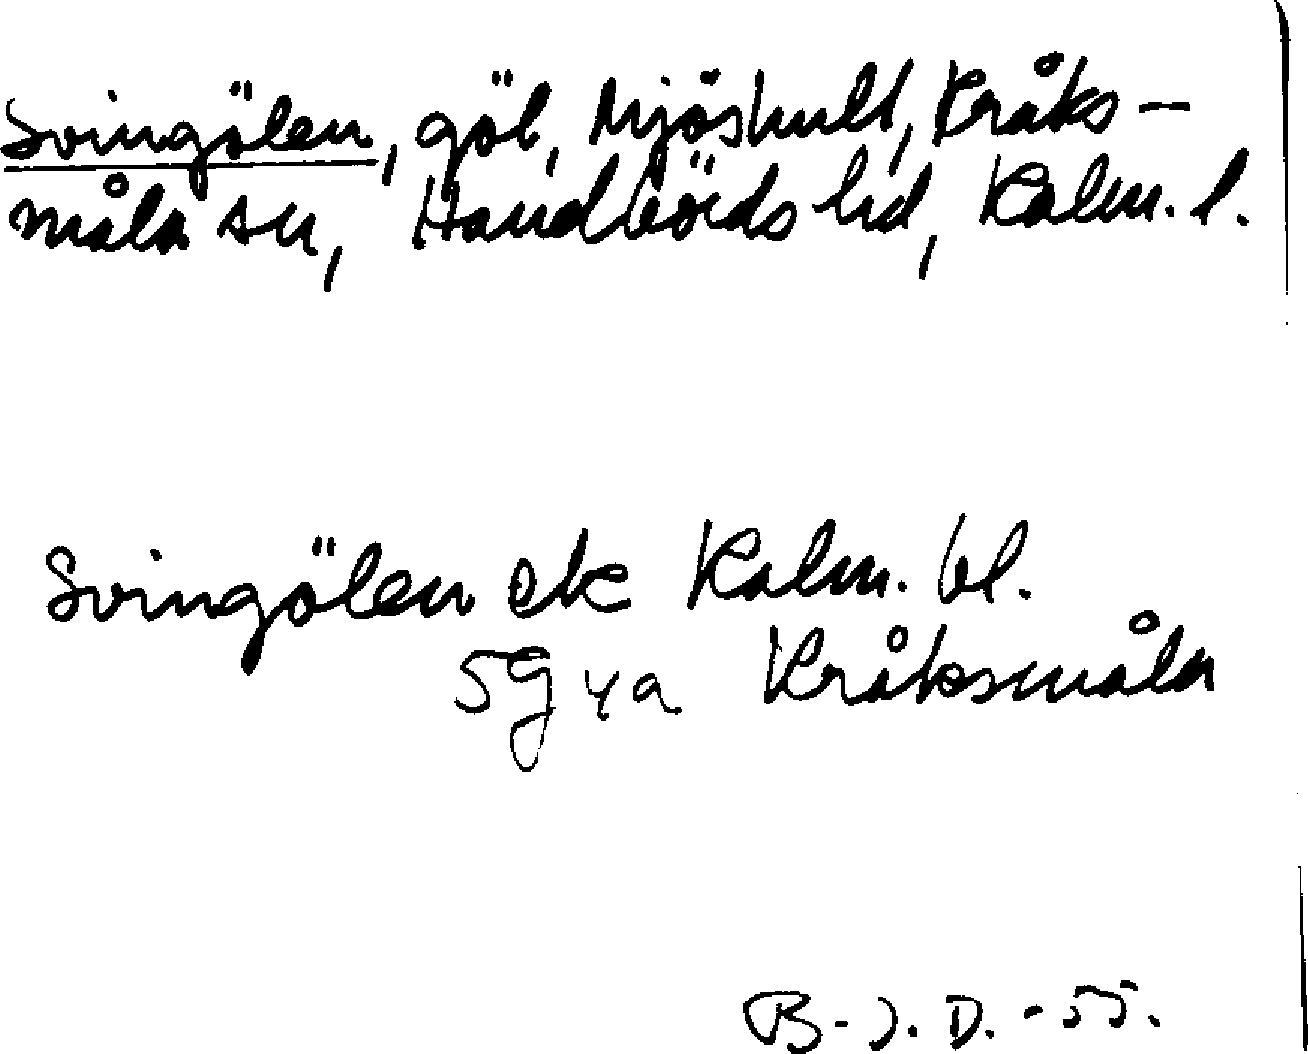 Svingölen, göl, Mjöshult, Kråks-
måla sn, Handbörds hd, Kalm. l.
Svingölen ek Kalm. bl.
5g 4a Kråksmåla
B-J. D. -55.